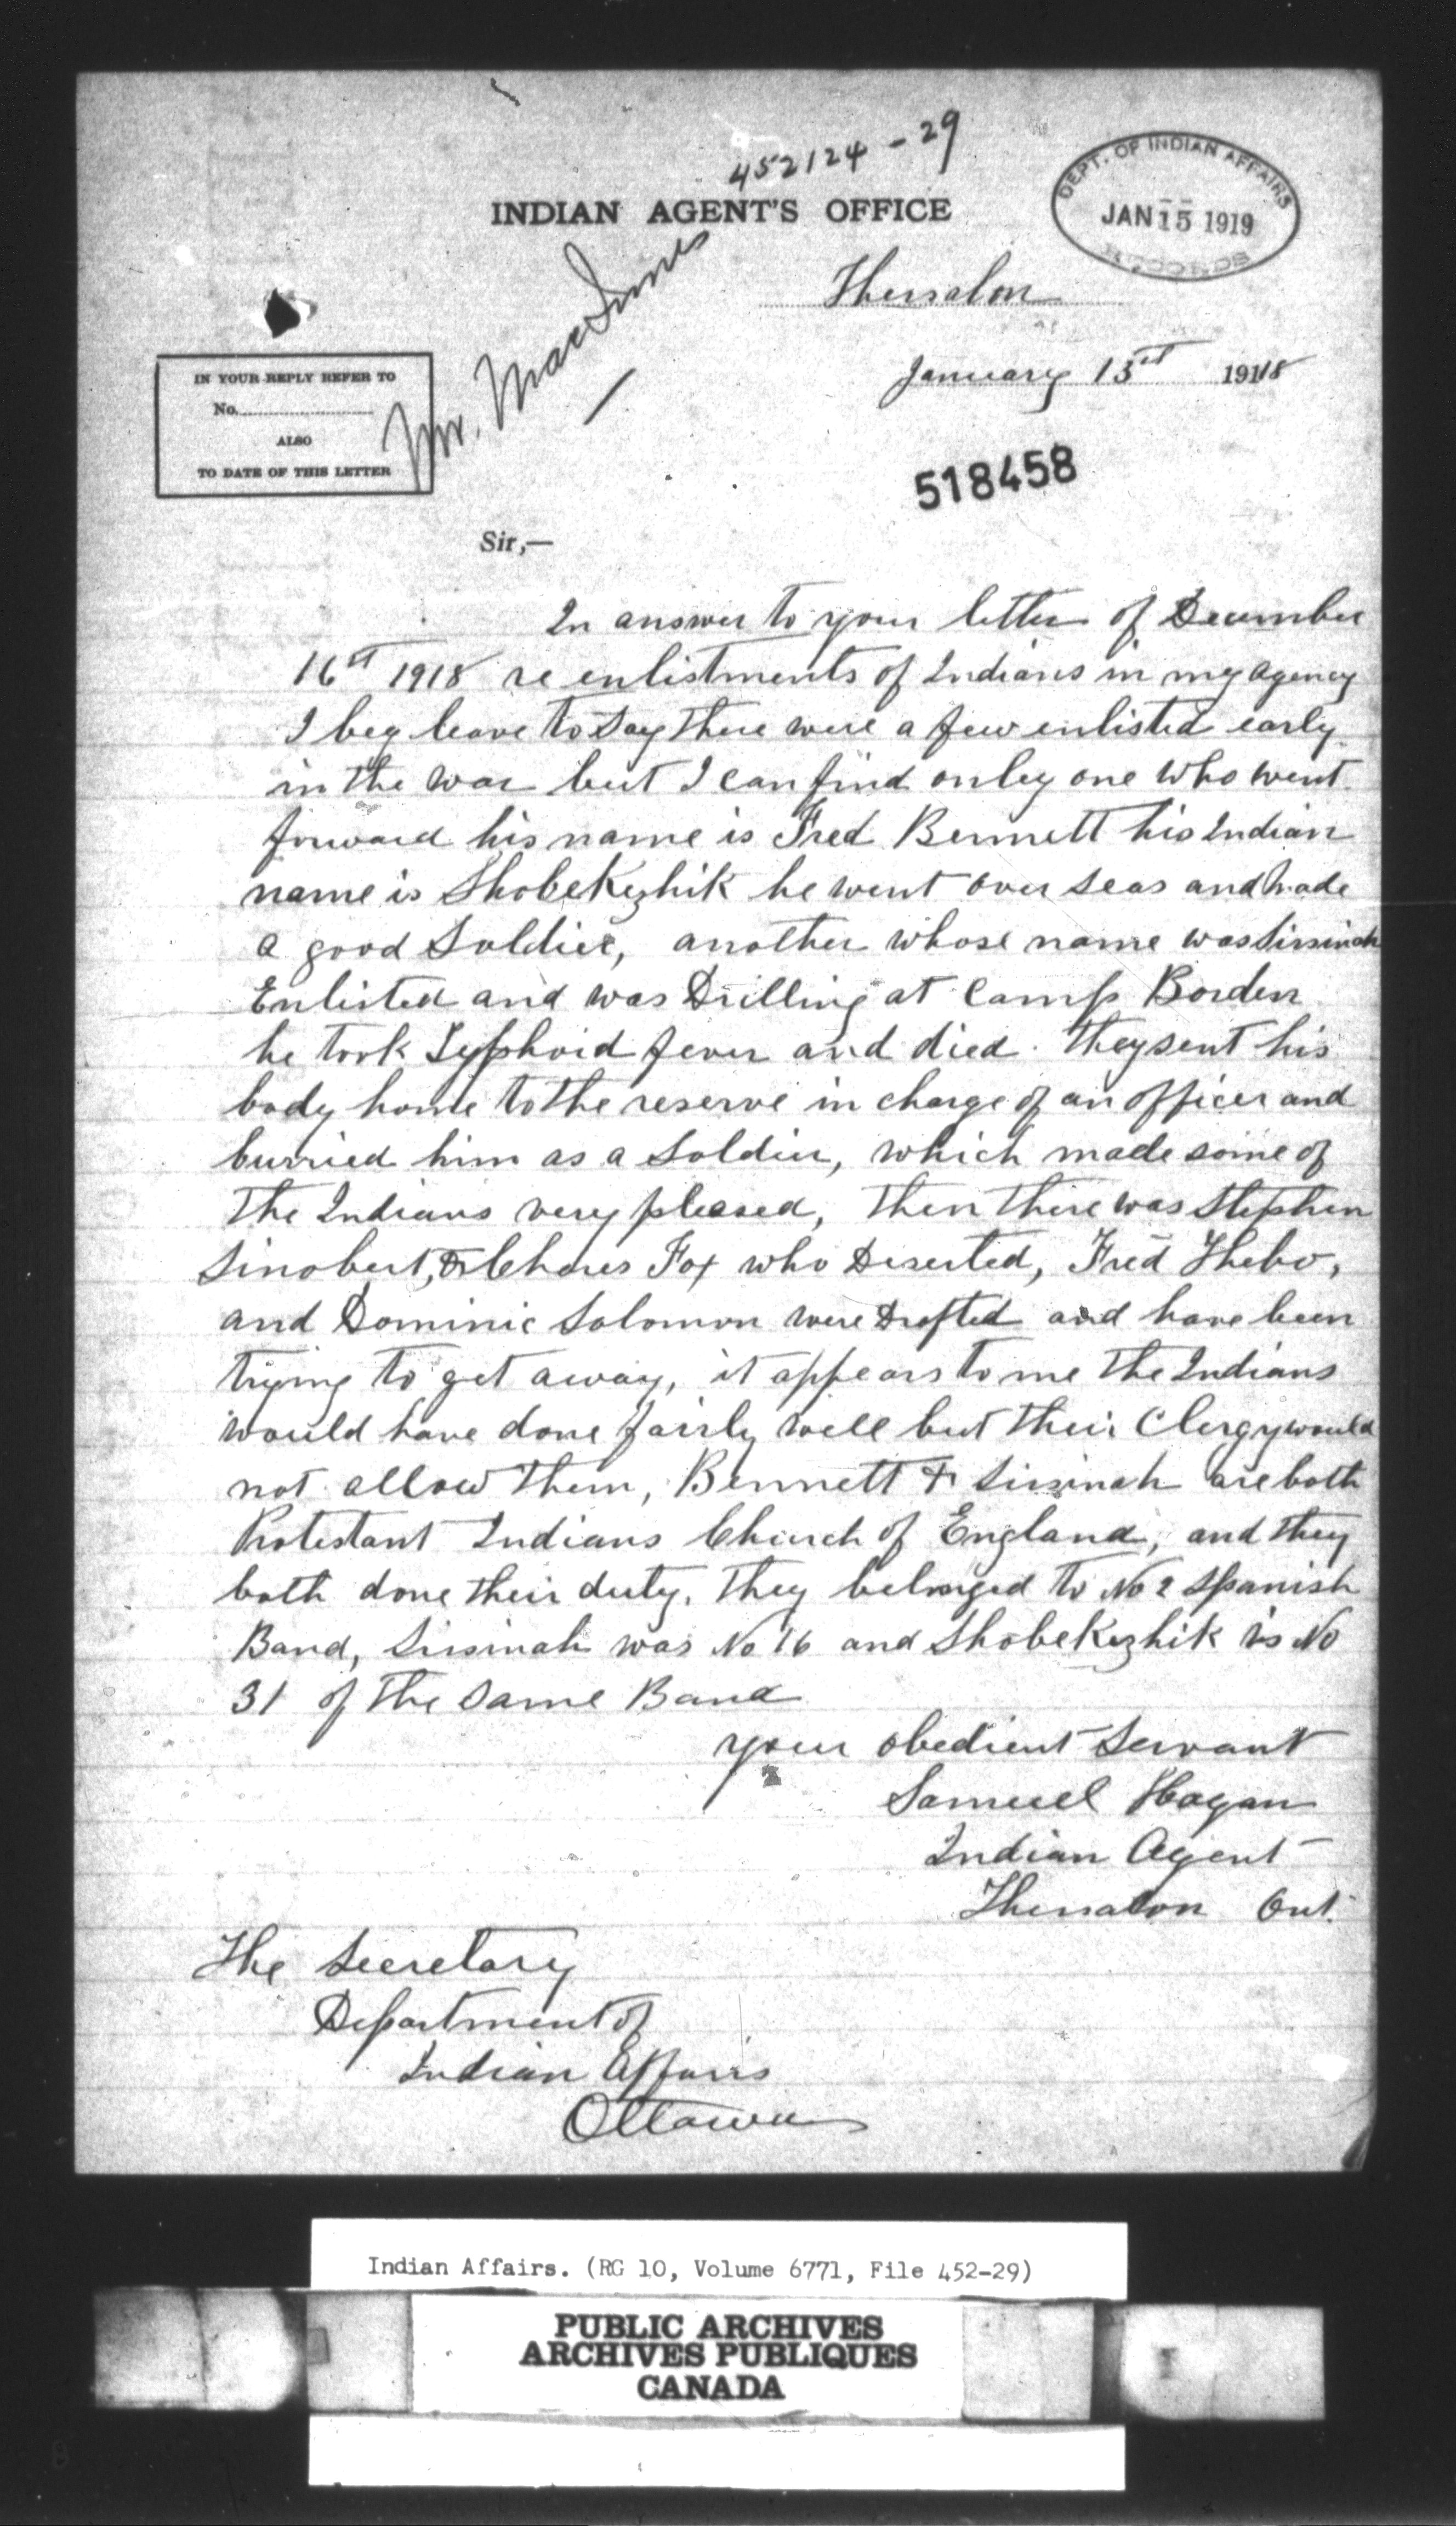 452124-29
INDIAN AGENT'S OFFICE
DEPT. OF INDIAN AFFAIRS
JAN 15 1919
RECORDS
Thessalon
Mr. MacInnes
January 13st 1918
IN YOUR REPLY REFER TO
No.
ALSO
TO DATE OF THIS LETTER
518458
Sir,—
In answer to your letter of December
16st 1918 re enlistments of Indians in my agency
I beg leave to Say there were a few enlisted early
in the war but I can find only one who went
forward his name is Fred Bennett his Indian
name is Shobekezhik he went over seas and made
a good Soldier, another whose name was Sissinah
Enlisted and was Drilling at Camp Borden
he took Typhoid fever and died. they sent his
body home to the reserve in charge of an officer and
burried him as a Soldier, which made some of
the Indians very pleased, then there was Stephen
Sinobert, & Chares Fox who Deserted, Fred Thebo,
and Dominic Solomon were Drafted and have been
trying to get away, it appears to me the Indians
would have done fairly well but their Clergy would
not allow them, Bennett & Sissinah are both
Protestant Indians Church of England, and they
both done their duty. they belonged to No 2 Spanish
Band, Sissinah was No 16 and Shobekezhik is No
31 of the Same Band
your obedient Servant
Samuel Hagan
Indian Agent
Thessalon Ont.
The Secretary
Department of
Indian Affairs
Ottawa
Indian Affairs. (RG 10, Volume 6771, File 452-29)
PUBLIC ARCHIVES
ARCHIVES PUBLIQUES
CANADA